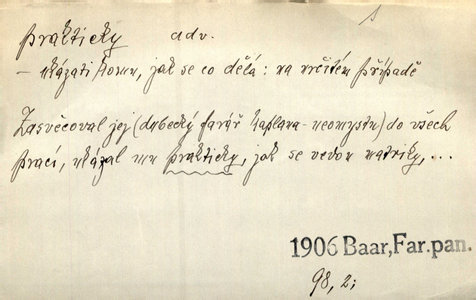 prakticky adv.
– ukázati komu, jak se co dělá: na určitém případě
Zasvěcoval jej (dubecký farář kaplana-neomystu) do všech
prací, ukázal mu prakticky, jak se vedou matriky, ...
1906 Baar, Far. pan.
98, 2;